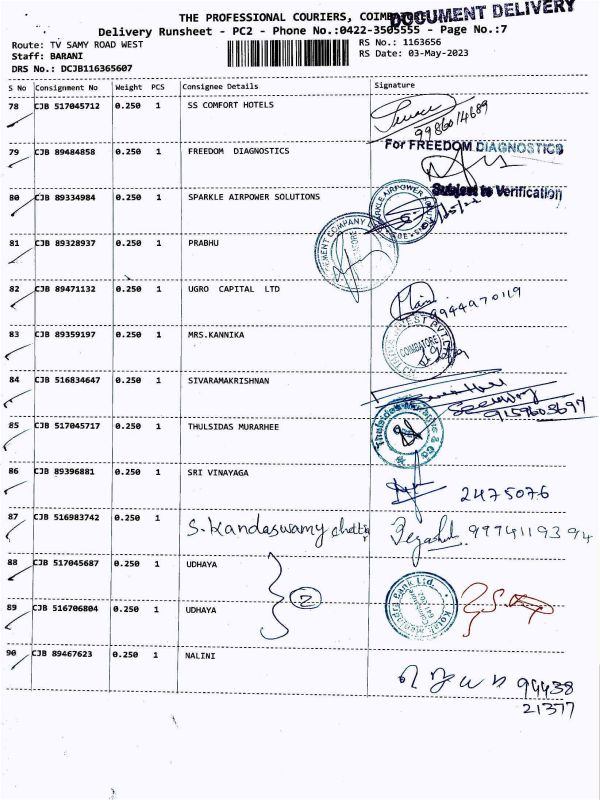 DOCUMENT DELIVERY
THE PROFESSIONAL COURIERS, COIMBATORE
Delivery Runsheet - PC2 - Phone No.:0422-3505555 - Page No.:7
Route: TV SAMY ROAD WEST RS No.: 1163656
Staff: BARANI RS Date: 03-May-2023
DRS No.: DCJB116365607
S No Consignment No Weight PCS Consignee Details Signature
78 CJB 517045712 0.250 1 SS COMFORT HOTELS
9986014689
79 CJB 89484858 0.250 1 FREEDOM DIAGNOSTICS For FREEDOM DIAGNOSTICS
80 CJB 89334984 0.250 1 SPARKLE AIRPOWER SOLUTIONS Subject to Verification
SPARKLE AIRPOWER
81 CJB 89328937 0.250 1 PRABHU
82 CJB 89471132 0.250 1 UGRO CAPITAL LTD
9944970119
83 CJB 89359197 0.250 1 MRS.KANNIKA
COIMBATORE
84 CJB 516834647 0.250 1 SIVARAMAKRISHNAN
Security
9159603697
85 CJB 517045717 0.250 1 THULSIDAS MURARHEE
Thulsidas Murarjee & Co
86 CJB 89396881 0.250 1 SRI VINAYAGA
2475076
87 CJB 516983742 0.250 1 S. Kandaswamy chetti 9974119394
88 CJB 517045687 0.250 1 UDHAYA
2
89 CJB 516706804 0.250 1 UDHAYA
Kotak Mahindra Bank Ltd.
90 CJB 89467623 0.250 1 NALINI
94438
21377